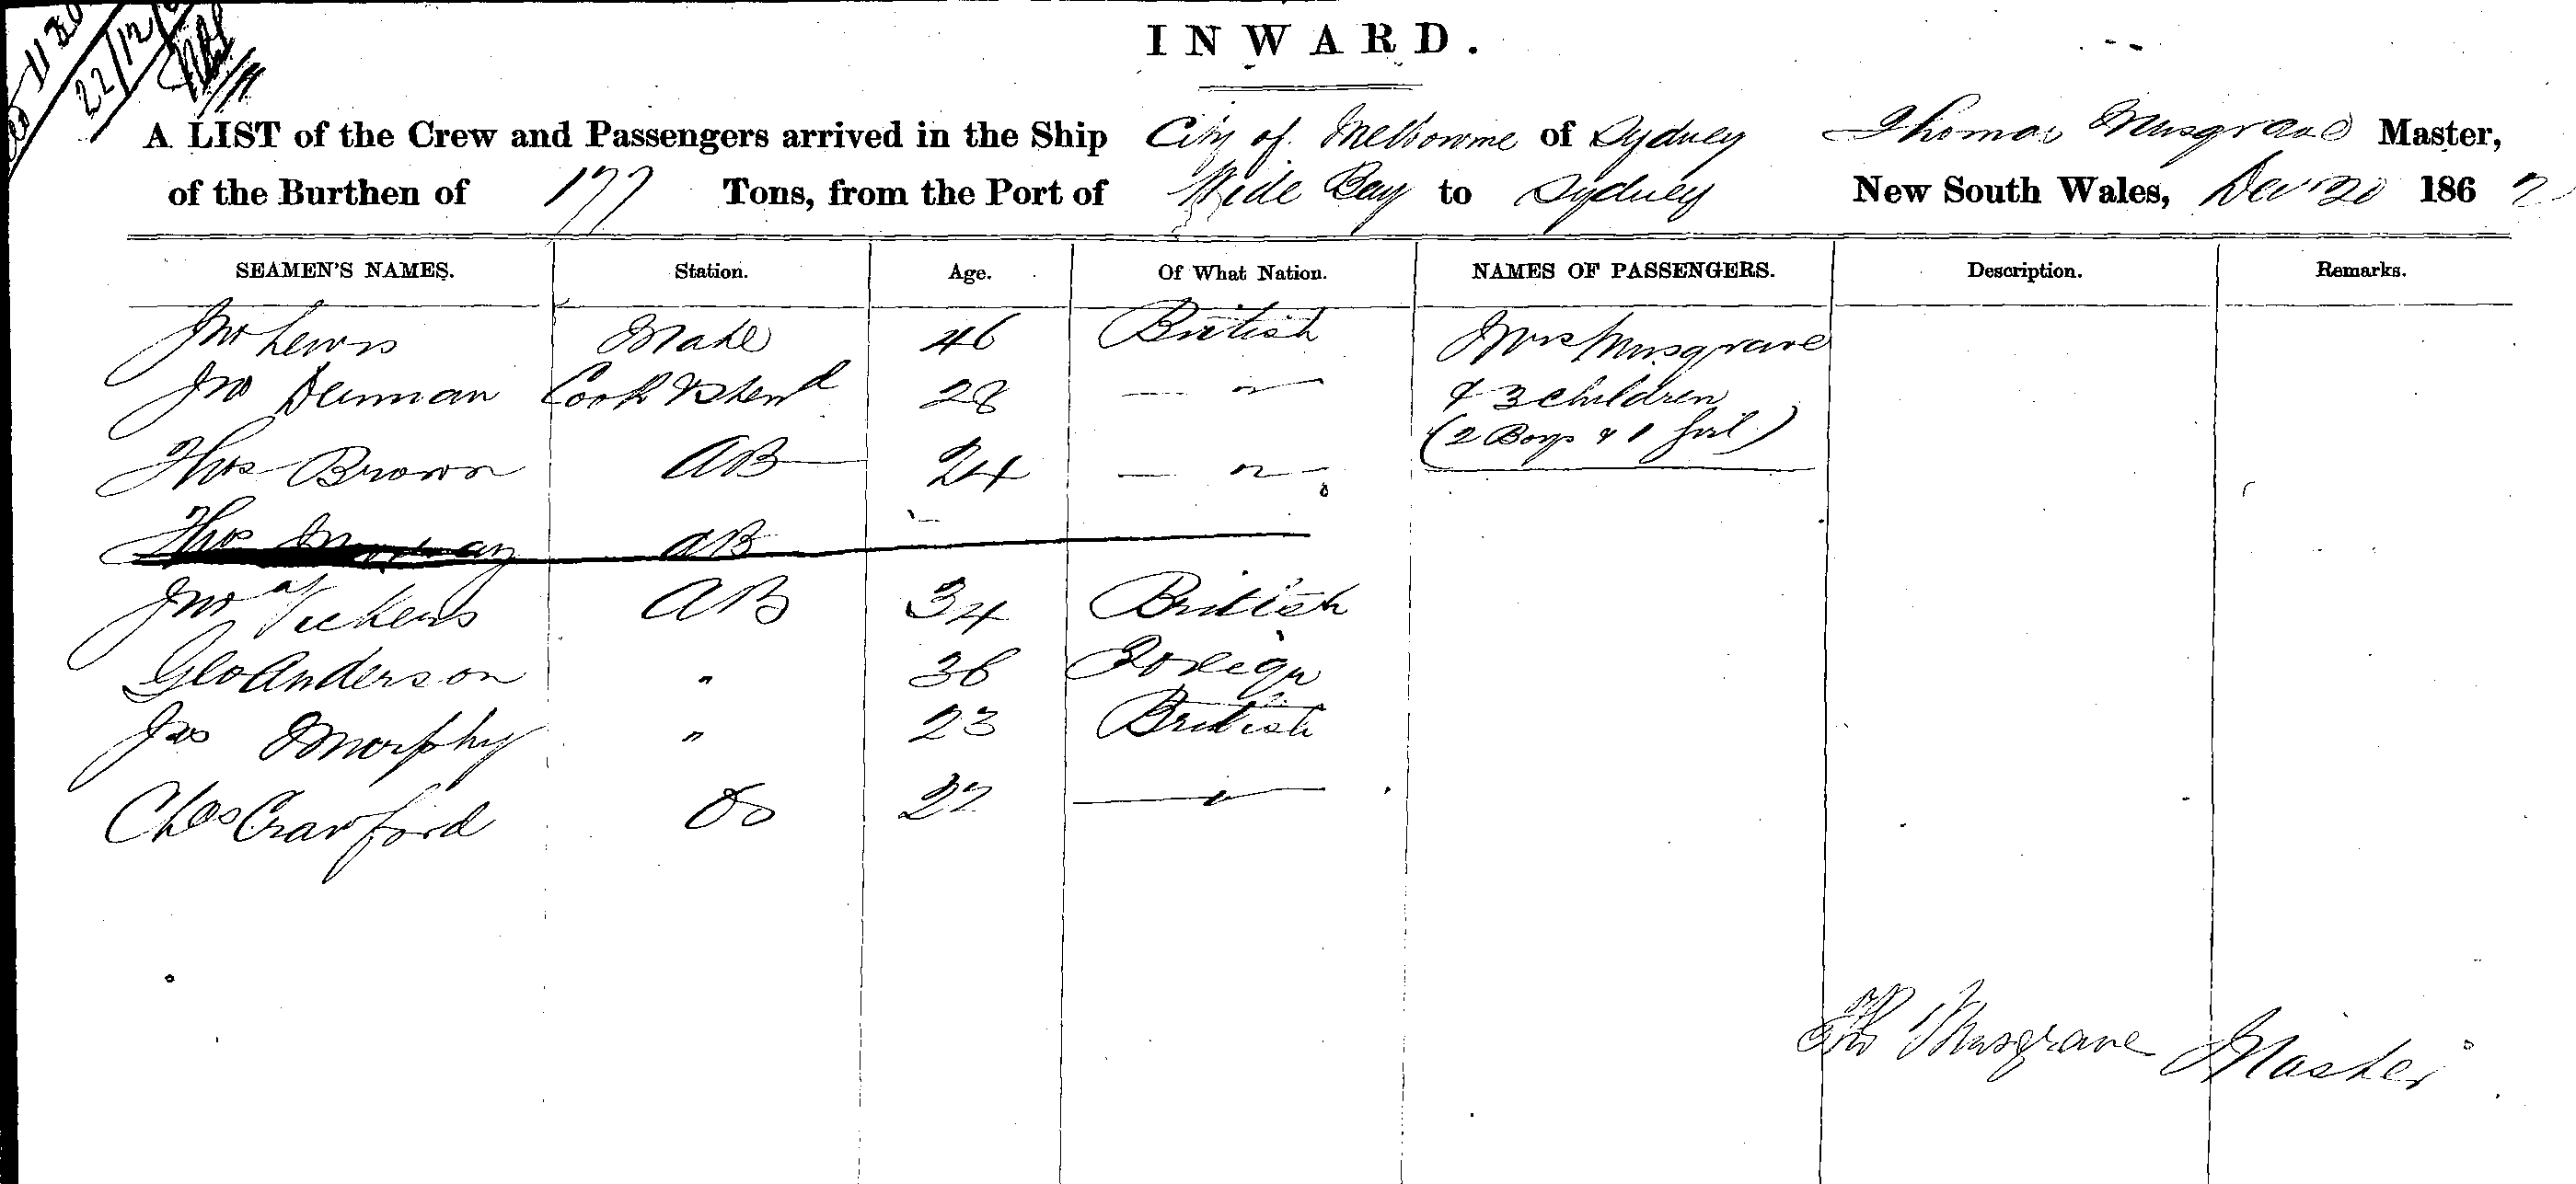 22/12/
INWARD.
A LIST of the Crew and Passengers arrived in the Ship City of Melbourne of Sydney Thomas Musgrave Master,
of the Burthen of 177 Tons, from the Port of Wide Bay to Sydney New South Wales, Dec 20 1862
SEAMEN'S NAMES. Station. Age. Of What Nation. NAMES OF PASSENGERS. Description. Remarks.
Jno Lewis Mate 46 British Mrs Musgrave
Jno Denman Cook & Stewd 28 — " — & 3 children
(2 Boys & 1 Girl)
Thos Brown AB 24 — " —
Thos AB
Jno Vickers AB 34 British
Geo Anderson " 36 Foreign
Jas Murphy " 23 British
Chas Crawford Do 22 — " —
Thos Musgrave Master